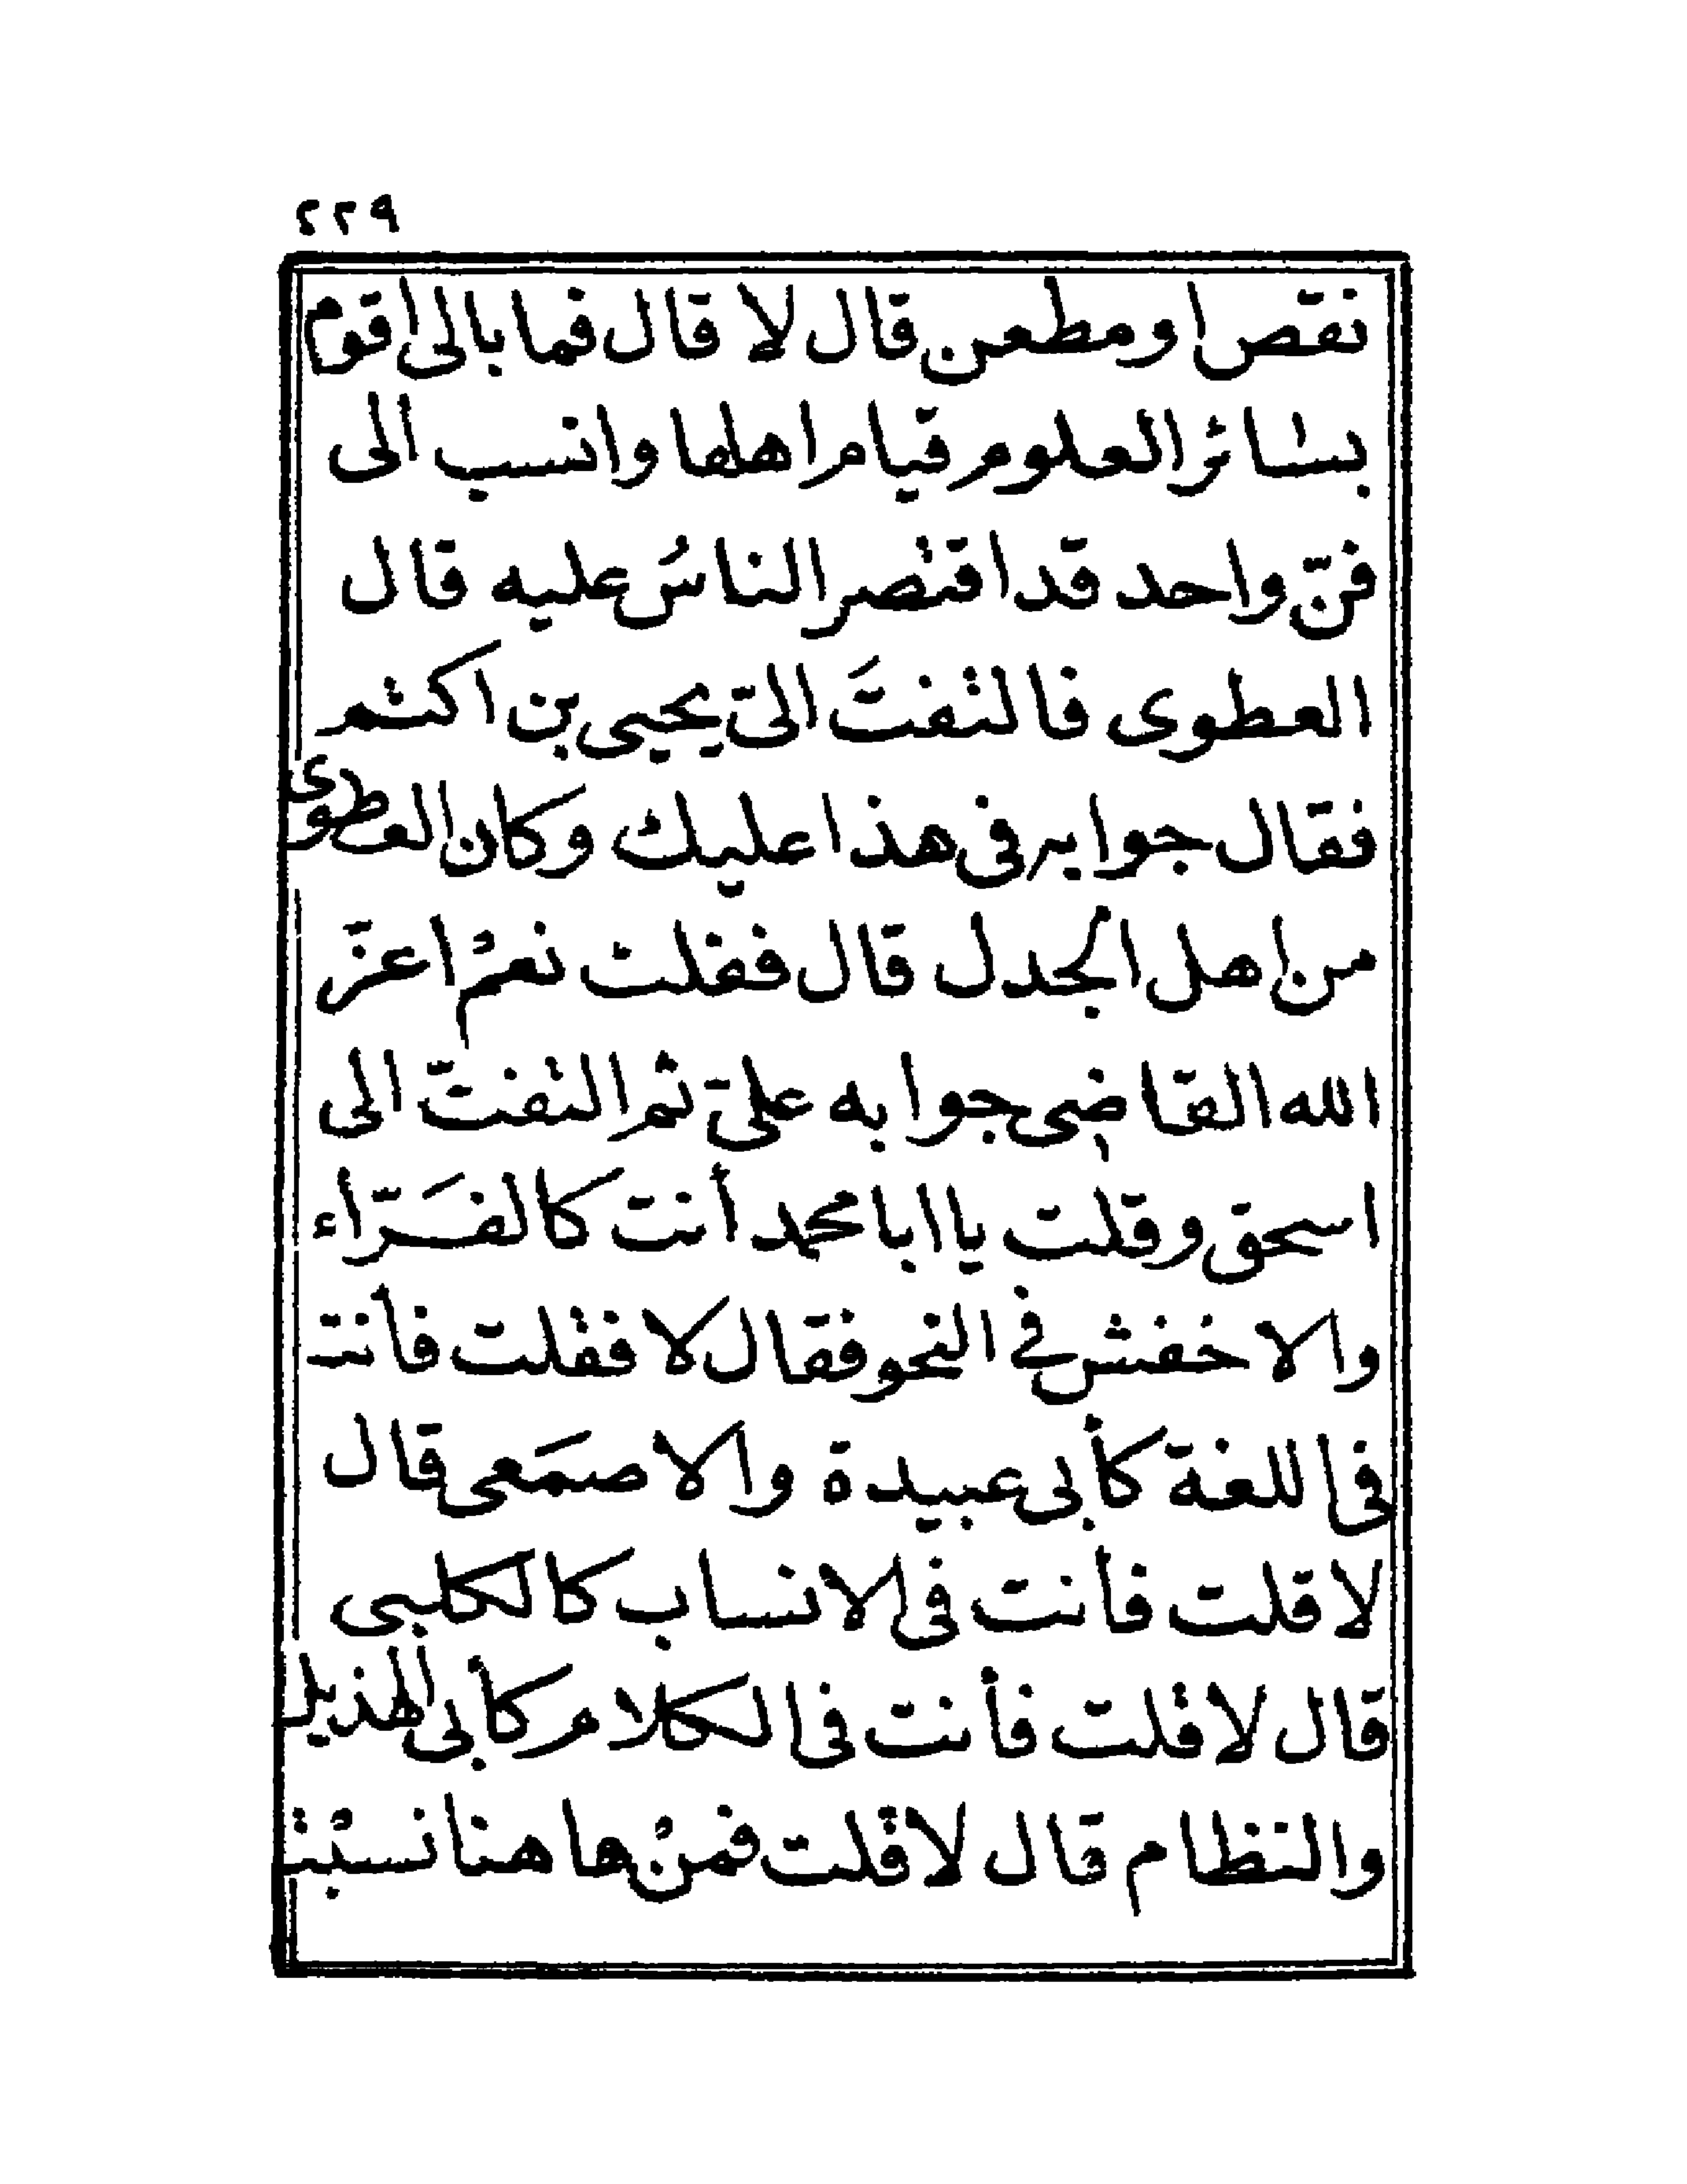 ٢٢٩
نقص او مطعن قال لا قال فما بالى اقوم
بسائر العلوم قيام اهلها وانسب الى
فنّ واحد قد اقتصر الناسُ عليه قال
العطوى فالتفتَ الىّ يحيى بن اكثم
فقال جوابه فى هذا عليك وكان العطوى
من اهل الجدل قال فقلت نعمْ اعزّ
الله القاضى جوابه علىّ ثم التفتّ الى
اسحق وقلت يا ابا محمد أنت كالفَرّاء
والاخفش فى النحو فقال لا فقلت فأنت
فى اللغة كأبى عبيدة والاصمَعى قال
لا قلت فأنت فى الانساب كالكلبى
قال لا قلت فأنت فى الكلام كأبى الهذيل
والنظام قال لا قلت فمنْ ها هنا نسبْت